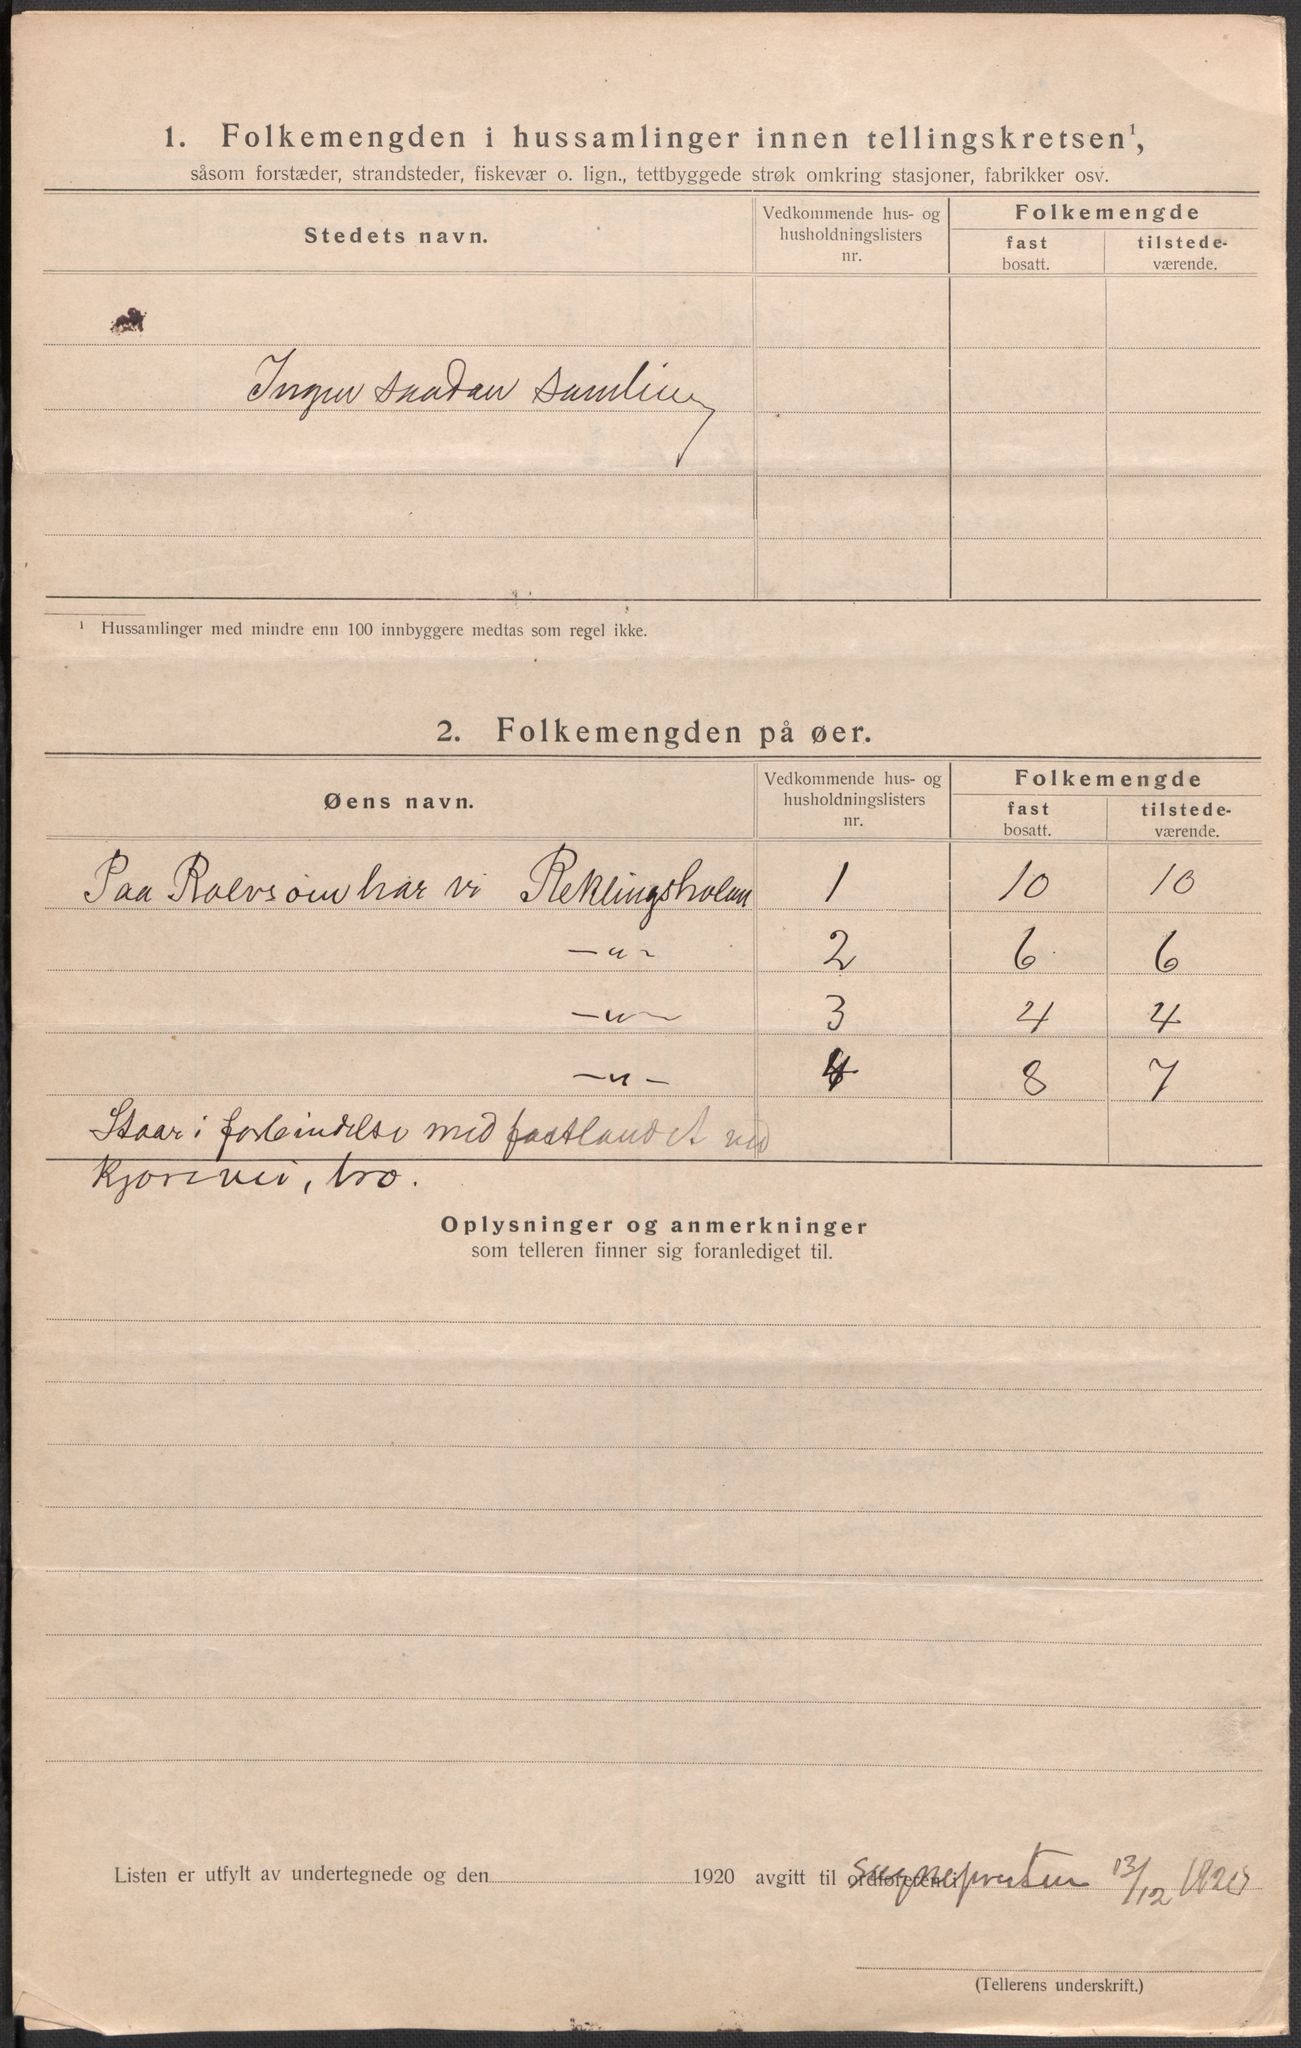 1. Folkemengden i hussamlinger innen tellingskretsen¹,
såsom forstæder, strandsteder, fiskevær o. lign., tettbyggede strøk omkring stasjoner, fabrikker osv.
Stedets navn.
Vedkommende hus- og husholdningslisters nr.
Folkemengde
fast bosatt.
tilstede-værende.
Ingen saadan samling
¹ Hussamlinger med mindre enn 100 innbyggere medtas som regel ikke.
2. Folkemengden på øer.
Øens navn.
Vedkommende hus- og husholdningslisters nr.
Folkemengde
fast bosatt.
tilstede-værende.
Paa Rolvsøen har vi Reklingsholen 1 10 10
—„— 2 6 6
—„— 3 4 4
—„— 4 8 7
Staar i forbindelse med fastlandet ved
Kjørevei, bro.
Oplysninger og anmerkninger
som telleren finner sig foranlediget til.
Listen er utfylt av undertegnede og den 1920 avgitt til ordføreren i sognepresten 13/12 1920
(Tellerens underskrift.)